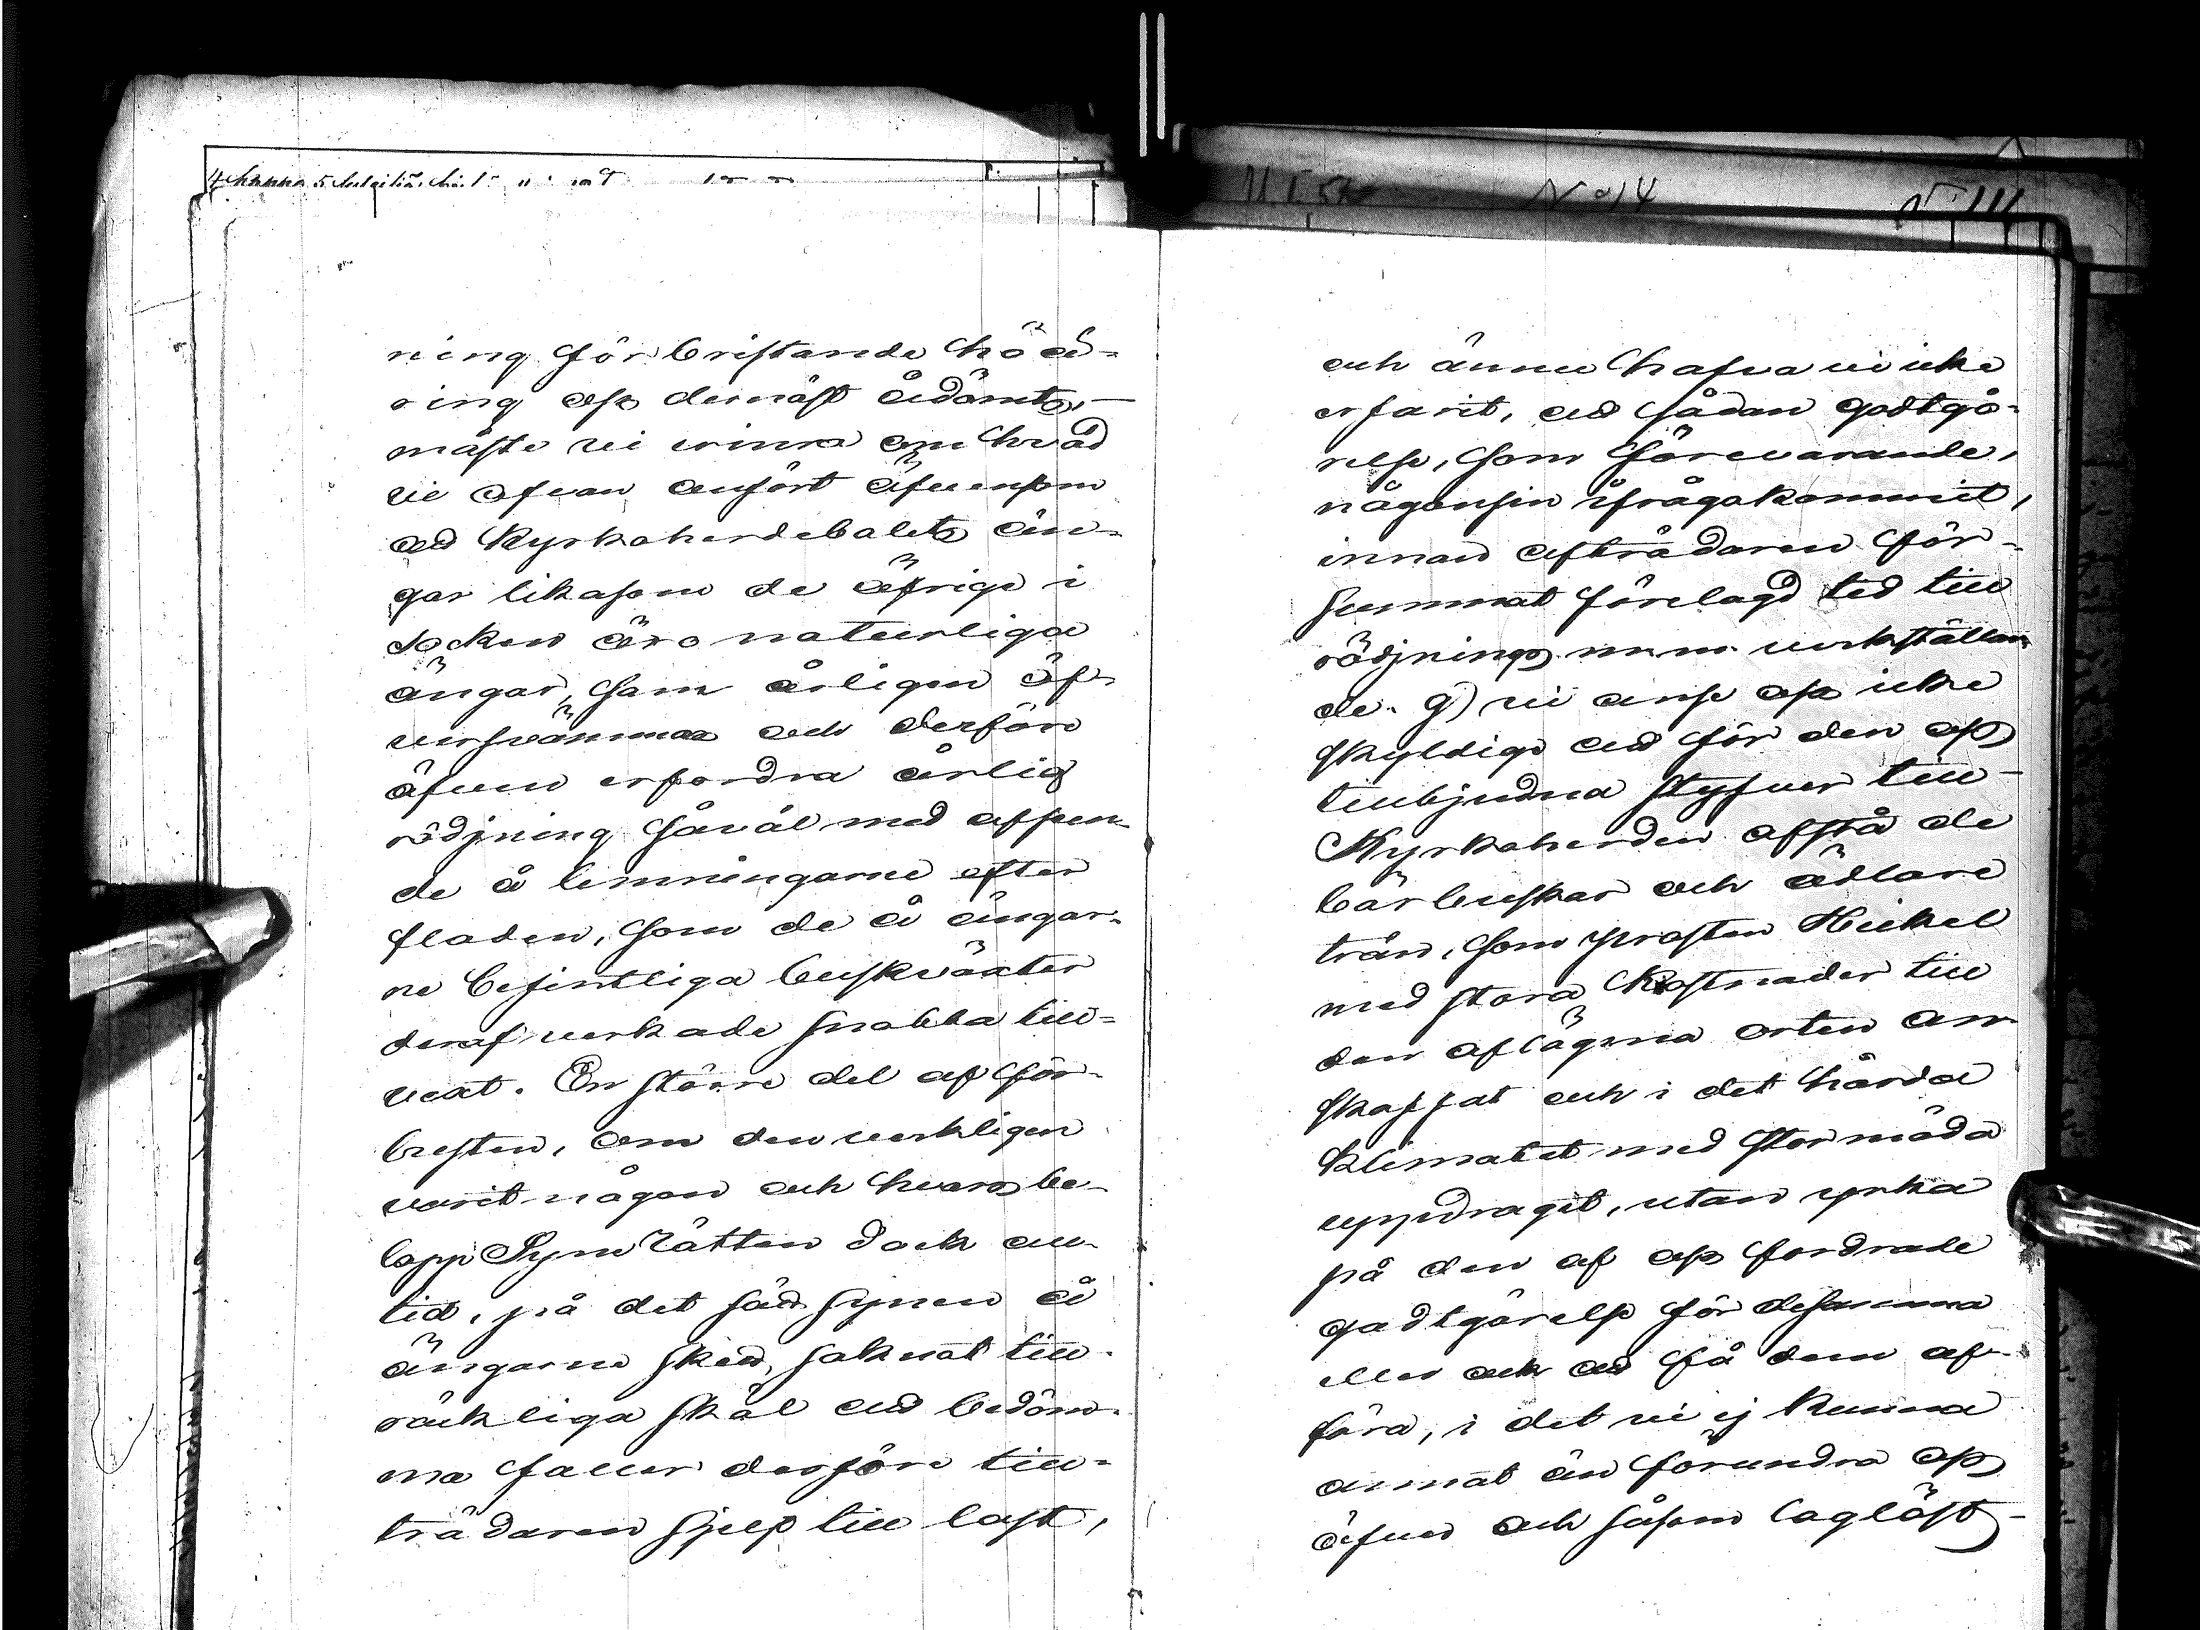 ning för bristande hö är=
ring oss dernäst ådömts,—
måste vi erinra om hvad
vi ofvan anfört äfvensom
att Kyrkoherdebolets än=
gar likasom de öfriga i
socken äro naturliga
ängar, som årligen öf=
versvämmas och derföre
äfven erfordra årlig
rödjning såväl med afseen=
de å lemningarne efter
floden, som de å ängar=
ne befintliga buskväxter
deraf verkade snabba till=
vext. En större del af för=
bristen, om den verkligen
varit någon och hvars be=
lopp Syne Rätten dock all=
tid, på det sätt synen å
ängarne skedt, saknat till=
räckliga skäl att bedöm=
ma faller derföre till=
trädaren sjelf till last,
och ännu hafva vi icke
erfarit, att sådan godtgö=
relse, som förevarande,
någonsin ifrågakommit,
innan afträdaren för=
summat förelagd tid till
rödjnings m.m. verkställan
de. g) vi anse oss icke
skyldiga att för den oss
tillbjudna styfver till
Kyrkoherden afstå de
bärbuskar och ädlare
trän, som prosten Heikel
med stora kostnader till
den aflägsna orten an=
skaffat och i det hårda
klimatet med stor möda
uppdragit, utan yrka
på den af oss fordrade
godtgörelse för desamma
eller ock att få dem af=
föra, i det vi ej kunna
annat än förundra oss
öfver ett såsom laglöst